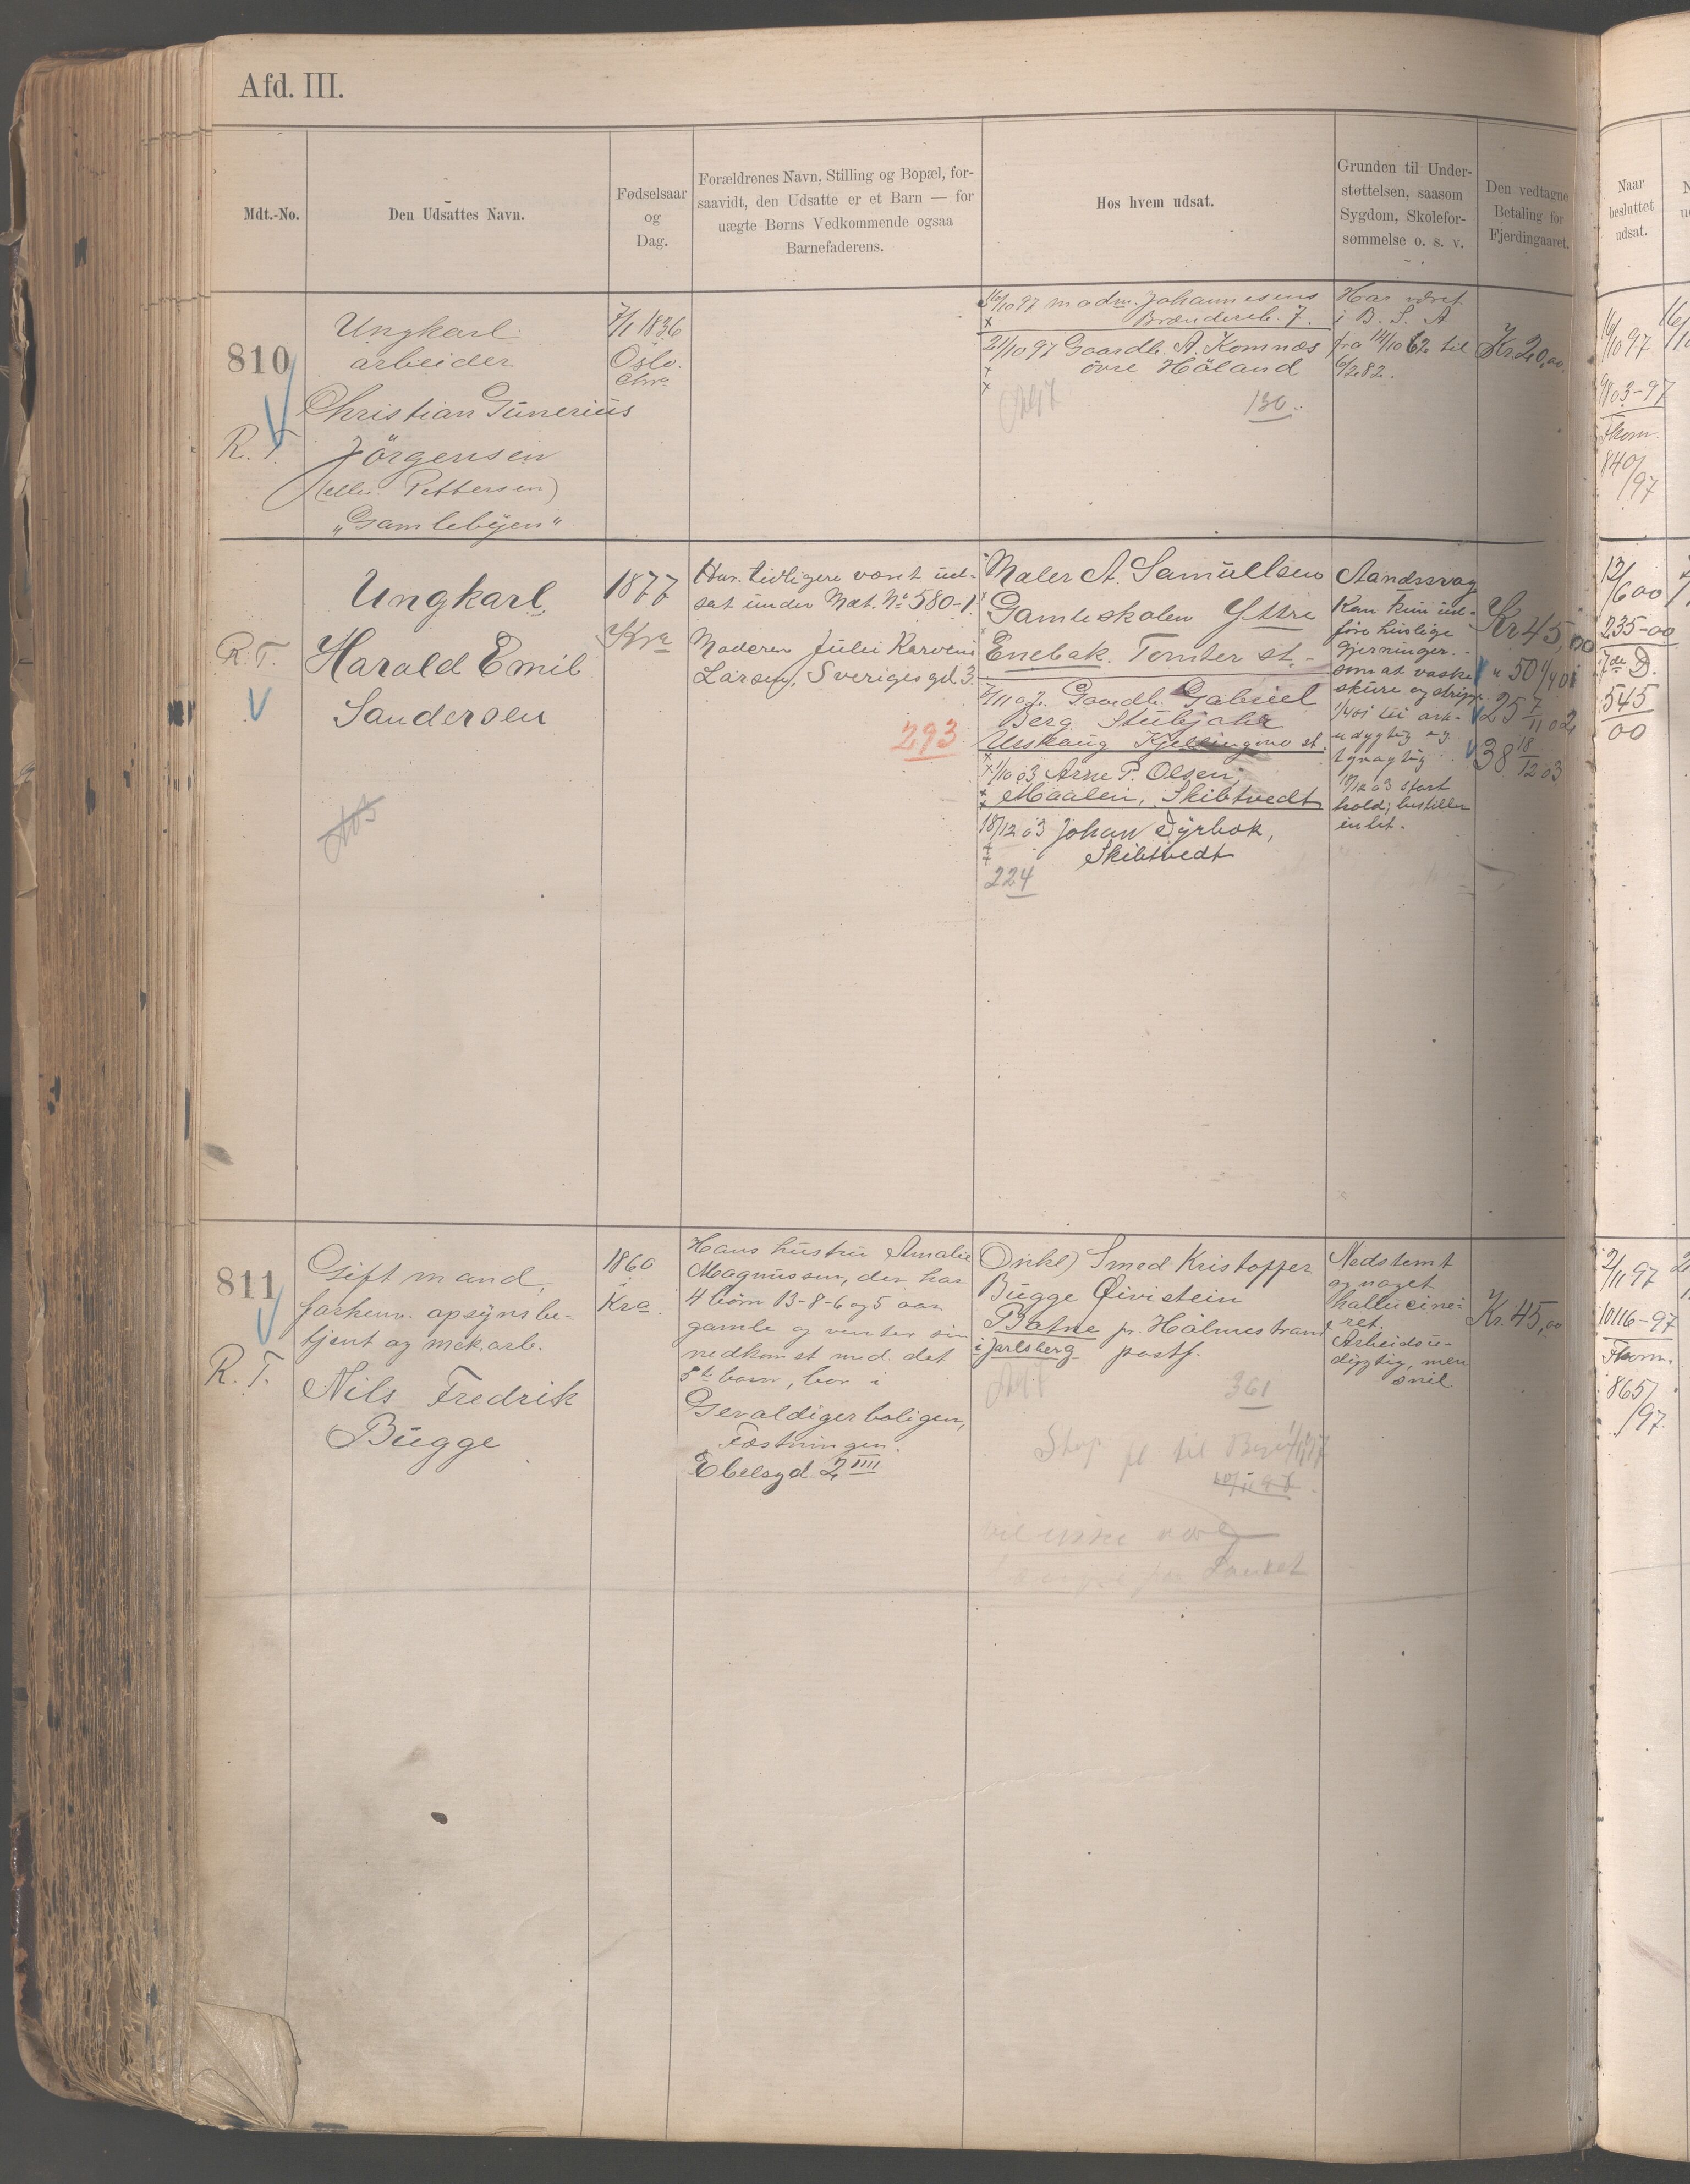 Afd. III.
Mdt.-No.
Den Udsattes Navn.
Fødselsaar
og
Dag.
Forældrenes Navn, Stilling og Bopæl, for-
saavidt, den Udsatte er et Barn — for
uægte Børns Vedkommende ogsaa
Barnefaderens.
Hos hvem udsat.
Grunden til Under-
støttelsen, saasom
Sygdom, Skolefor-
sømmelse o. s. v.
Den vedtagne
Betaling for
Fjerdingaaret.
Naar
besluttet
udsat.
810
R. T.
Ungkarl
arbeider
Christian Gunerius
Jörgensen
(eller Pettersen)
"Gamlebyen"
7/1 1836
Oslo.
Chra
16/10 97 madm. Johannesens
Brændereb. 7.
21/10 97 Gaardb. A. Komnæs
övre Höland
130.
Har været
i B. S. A
fra 14/10 62 til
6/2 82.
Kr. 20,00.
16/10 97
9803-97
Fkom.
840/97
R. T.
Ungkarl
Harald Emil
Sandersen
1877
Kra
Har tidligere været ud-
sat under Mdt. No 580-1.
Moderen Julie Karoline
Larsen, Sveriges gd 3.
293
Maler A. Samuelsen
Gamleskolen Yttre
Enebak. Tomter st. -
7/11 02. Gaardb. Gabriel
Berg
Urskaug Kjellingmo st.
1/10 03 Arne P. Olsen,
Maalen, Skibtvedt
18/12 03 Johan Dyrbok,
Skibtvedt
224
Aandssvag
Kan kun ud-
føre huslige
gjerninger. -
som at vaske
skure og strige
1/4 01 til arb-
udygtig og
18/12 03 stort
hold; bestiller
intet.
Kr 45,00
" 50 1/4 01
25 7/11 02
38 18/12 03
12/6 00
235-00
7de D.
545
00
811
R. T.
Gift mand,
forhenv. opsynsbe-
tjent og mek. arb.
Nils Fredrik
Bugge
1860
i
Kra.
Hans hustru Amalie
Magnussen, der har
4 børn 13-8-6 og 5 aar
gamle og venter sin
nedkomst med det
5te barn, bor i
Gevaldigerboligen,
Fæstningen.
Ebelsgd. 2 IIII
Onkel) Smed Kristoffer
Bugge Eivistein
Botne pr. Holmestrand
i Jarlsberg postf.
361
Nedstemt
og noget
hallucine-
ret.
Arbeidsu-
dygtig, men
snil.
Kr. 45,00
2/11 97
10116-97
Fkom.
865/97.